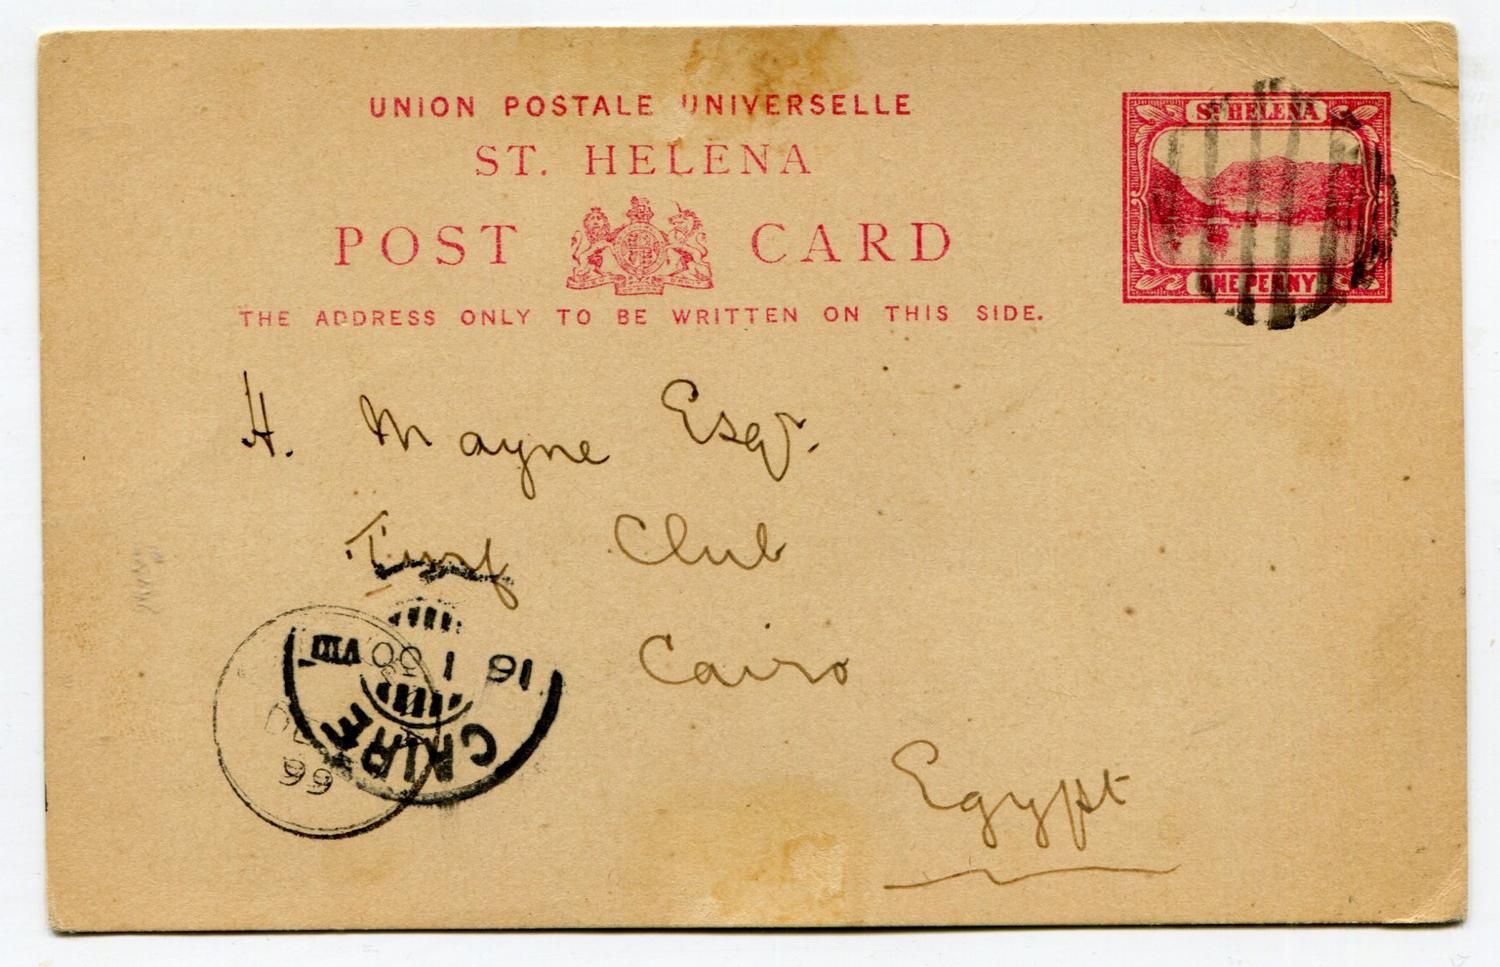 UNION POSTALE UNIVERSELLE
ST. HELENA
POST CARD
THE ADDRESS ONLY TO BE WRITTEN ON THIS SIDE.
ST HELENA
ONE PENNY
H. Mayne Esqr.
Turf Club
Cairo
Egypt
CAIRE
16 I 00
VIII
99